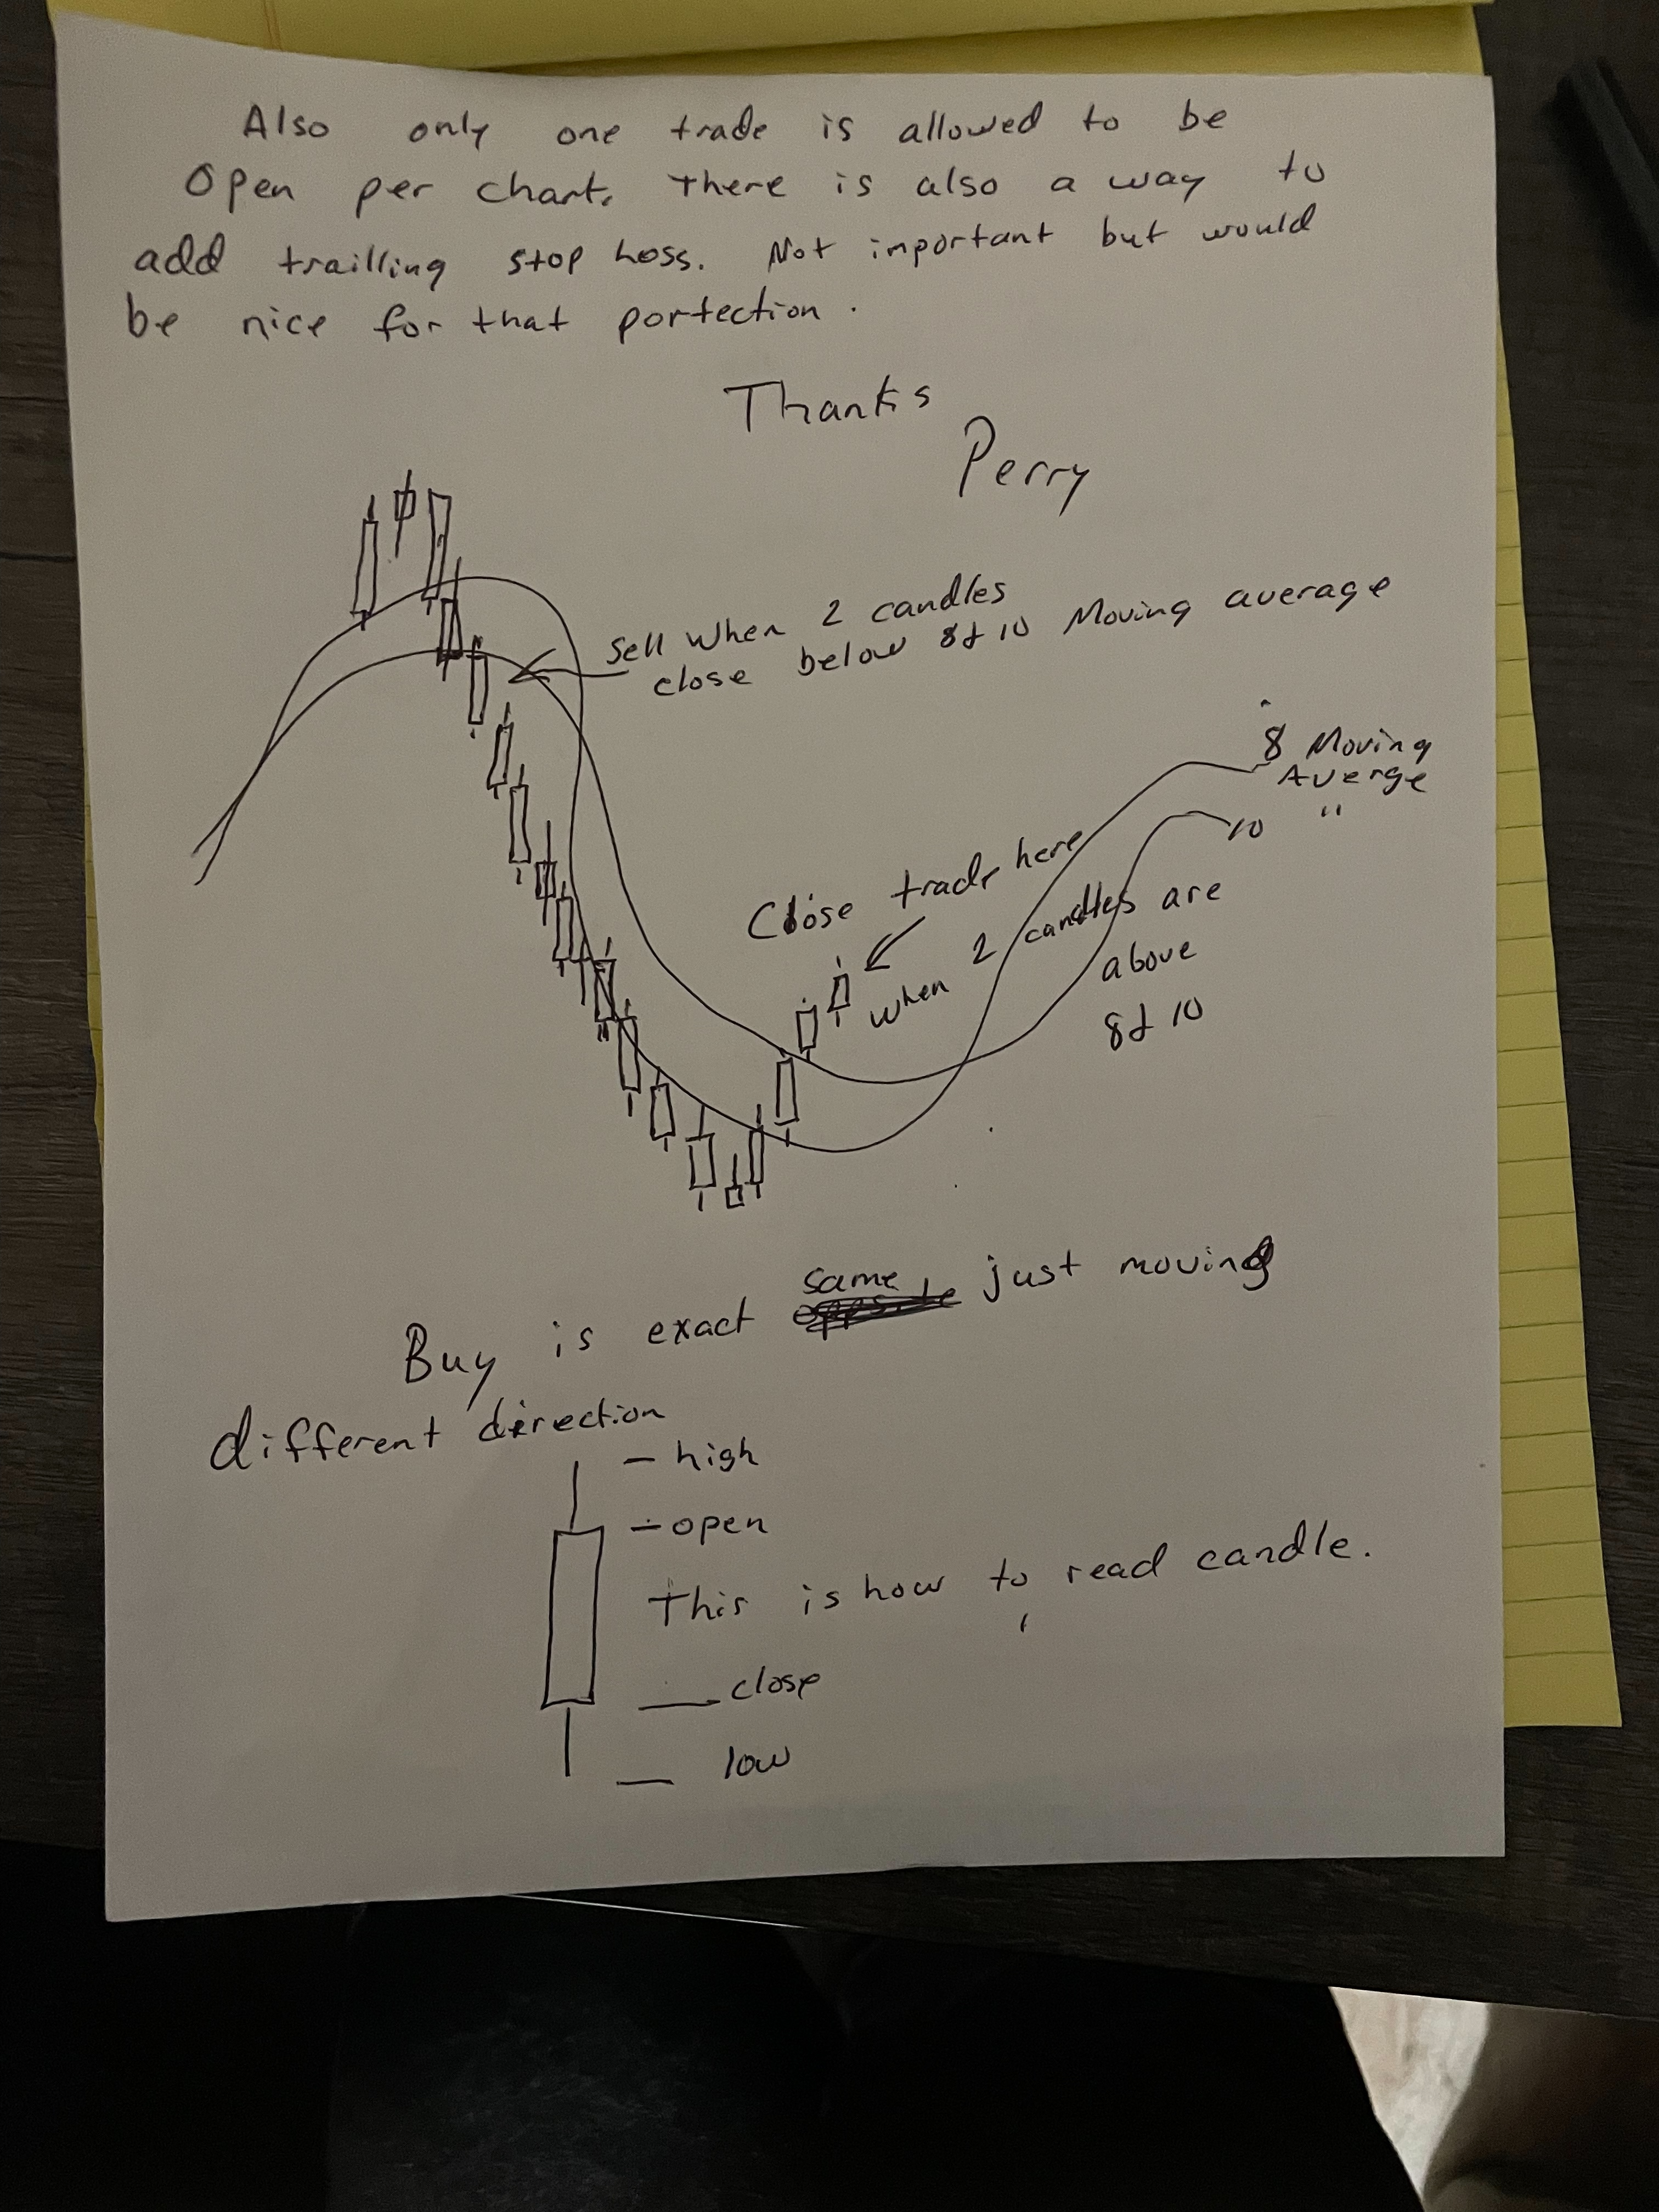 Also only one trade is allowed to be
Open per chart. There is also a way to
add trailling stop Loss. Not important but would
be nice for that portection.
Thanks
Perry
Sell when 2 candles
close below 8 & 10 Moving average
8 Moving
Averge
10 "
Close trade here
when 2 candles are
above
8 & 10
same
Buy is exact opposite just moving
different direction
- high
- open
This is how to read candle.
__ close
__ low